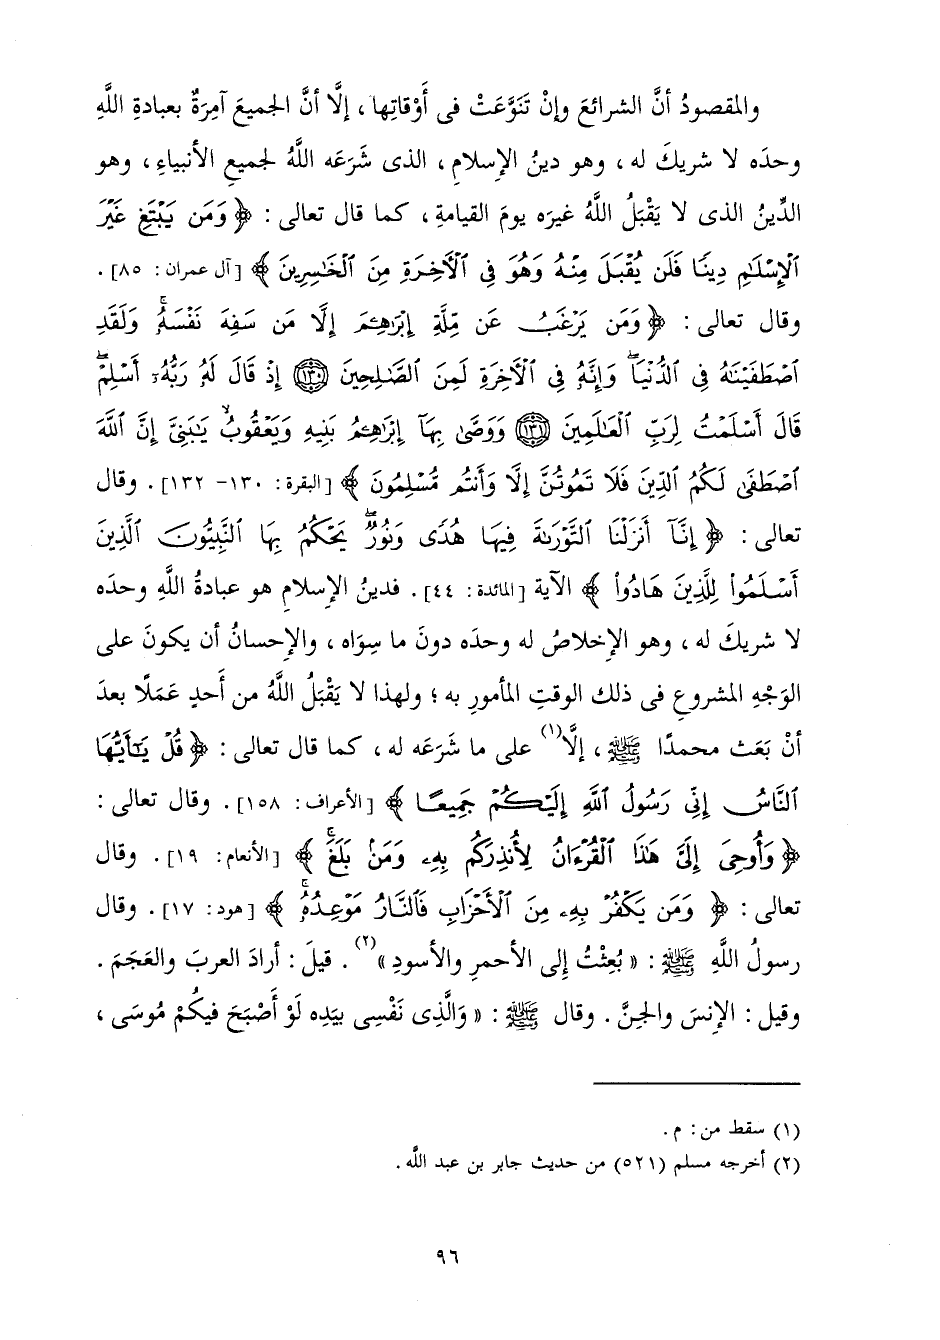 والمقصودُ أنَّ الشرائعَ وإنْ تَنَوَّعَتْ فى أَوْقاتِها، إلَّا أنَّ الجميعَ آمِرَةٌ بعبادةِ اللَّهِ
وحدَه لا شريكَ له، وهو دينُ الإسلامِ، الذى شَرَعَه اللَّهُ لجميعِ الأنبياءِ، وهو
الدِّينُ الذى لا يَقْبَلُ اللَّهُ غيرَه يومَ القيامةِ، كما قال تعالى: ﴿وَمَن يَبْتَغِ غَيْرَ
ٱلْإِسْلَٰمِ دِينًا فَلَن يُقْبَلَ مِنْهُ وَهُوَ فِى ٱلْأَخِرَةِ مِنَ ٱلْخَٰسِرِينَ﴾ [آل عمران: ٨٥].
وقال تعالى: ﴿وَمَن يَرْغَبُ عَن مِّلَّةِ إِبْرَٰهِـۧمَ إِلَّا مَن سَفِهَ نَفْسَهُۥۚ وَلَقَدِ
ٱصْطَفَيْنَٰهُ فِى ٱلدُّنْيَاۖ وَإِنَّهُۥ فِى ٱلْأَخِرَةِ لَمِنَ ٱلصَّٰلِحِينَ ﴿١٣٠﴾ إِذْ قَالَ لَهُۥ رَبُّهُۥٓ أَسْلِمْۖ
قَالَ أَسْلَمْتُ لِرَبِّ ٱلْعَٰلَمِينَ ﴿١٣١﴾ وَوَصَّىٰ بِهَآ إِبْرَٰهِـۧمُ بَنِيهِ وَيَعْقُوبُ يَٰبَنِىَّ إِنَّ ٱللَّهَ
ٱصْطَفَىٰ لَكُمُ ٱلدِّينَ فَلَا تَمُوتُنَّ إِلَّا وَأَنتُم مُّسْلِمُونَ﴾ [البقرة: ١٣٠- ١٣٢]. وقال
تعالى: ﴿إِنَّآ أَنزَلْنَا ٱلتَّوْرَىٰةَ فِيهَا هُدًى وَنُورٌۖ يَحْكُمُ بِهَا ٱلنَّبِيُّونَ ٱلَّذِينَ
أَسْلَمُوا۟ لِلَّذِينَ هَادُوا۟﴾ الآية [المائدة: ٤٤]. فدينُ الإسلامِ هو عبادةُ اللَّهِ وحدَه
لا شريكَ له، وهو الإخلاصُ له وحدَه دونَ ما سِوَاه، والإحسانُ أن يكونَ على
الوَجْهِ المشروعِ فى ذلك الوقتِ المأمورِ به؛ ولهذا لا يَقْبَلُ اللَّهُ من أَحدٍ عَمَلًا بعدَ
أنْ بَعَث محمدًا ﷺ، إلَّا(١) على ما شَرَعَه له، كما قال تعالى: ﴿قُلْ يَٰٓأَيُّهَا
ٱلنَّاسُ إِنِّى رَسُولُ ٱللَّهِ إِلَيْكُمْ جَمِيعًا﴾ [الأعراف: ١٥٨]. وقال تعالى:
﴿وَأُوحِىَ إِلَىَّ هَٰذَا ٱلْقُرْءَانُ لِأُنذِرَكُم بِهِۦ وَمَنۢ بَلَغَۚ﴾ [الأنعام: ١٩]. وقال
تعالى: ﴿وَمَن يَكْفُرْ بِهِۦ مِنَ ٱلْأَحْزَابِ فَٱلنَّارُ مَوْعِدُهُۥۚ﴾ [هود: ١٧]. وقال
رسولُ اللَّهِ ﷺ: «بُعِثْتُ إلى الأحمرِ والأسودِ»(٢). قيلَ: أرادَ العربَ والعَجَمَ.
وقيل: الإنسَ والجنَّ. وقال ﷺ: «وَالَّذِى نَفْسِى بيَدِه لَوْ أَصْبَحَ فيكُمْ مُوسَى،
(١) سقط من: م.
(٢) أخرجه مسلم (٥٢١) من حديث جابر بن عبد اللَّه.
٩٦